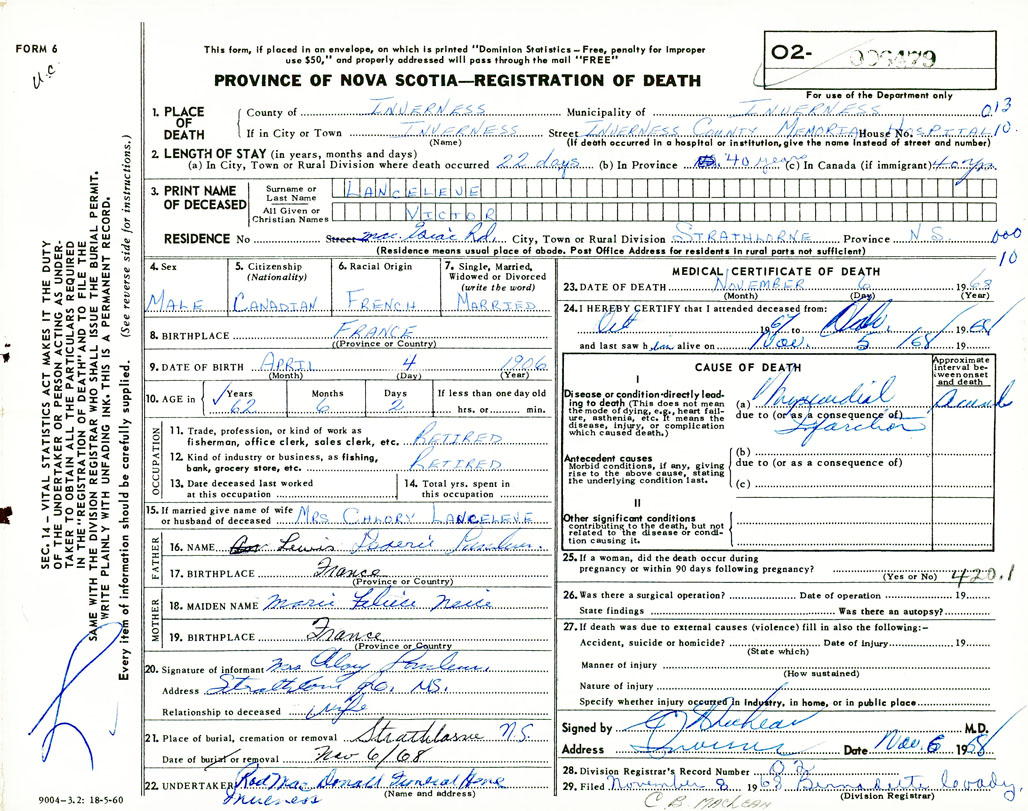 FORM 6
U.C.
This form, if placed in an envelope, on which is printed "Dominion Statistics – Free, penalty for improper
use $50," and properly addressed will pass through the mail "FREE"
PROVINCE OF NOVA SCOTIA—REGISTRATION OF DEATH
02- 006479
For use of the Department only
1. PLACE OF DEATH
County of INVERNESS Municipality of INVERNESS 013
If in City or Town INVERNESS Street INVERNESS COUNTY MEMORIAL House No. HOSPITAL 10.
(Name) (If death occurred in a hospital or institution, give the name instead of street and number)
2. LENGTH OF STAY (in years, months and days)
(a) In City, Town or Rural Division where death occurred 22 days (b) In Province 40 years (c) In Canada (if immigrant) 40 yrs.
3. PRINT NAME OF DECEASED
Surname or Last Name LANCELEVE
All Given or Christian Names VICTOR
RESIDENCE No Street Mac Isaac Rd. City, Town or Rural Division STRATHLORNE Province N.S. 000
(Residence means usual place of abode. Post Office Address for residents in rural parts not sufficient) 10
4. Sex MALE
5. Citizenship (Nationality) CANADIAN
6. Racial Origin FRENCH
7. Single, Married, Widowed or Divorced (write the word) MARRIED
8. BIRTHPLACE FRANCE
(Province or Country)
9. DATE OF BIRTH APRIL 4 1906
(Month) (Day) (Year)
10. AGE in Years 62 Months 6 Days 2 If less than one day old hrs. or min.
OCCUPATION
11. Trade, profession, or kind of work as
fisherman, office clerk, sales clerk, etc. RETIRED
12. Kind of industry or business, as fishing,
bank, grocery store, etc. RETIRED
13. Date deceased last worked
at this occupation
14. Total yrs. spent in
this occupation
15. If married give name of wife
or husband of deceased MRS CHLORY LANCELEVE
FATHER
16. NAME Lewis
17. BIRTHPLACE France
(Province or Country)
MOTHER
18. MAIDEN NAME Marie
19. BIRTHPLACE France
(Province or Country)
20. Signature of informant Mrs Chlory
Address Strathlorne N.S.
Relationship to deceased wife
21. Place of burial, cremation or removal Strathlorne N.S.
Date of burial or removal Nov 6/68
22. UNDERTAKER Rod Mac Donald Funeral Home
Inverness (Name and address)
9004-3.2: 18-5-60
MEDICAL CERTIFICATE OF DEATH
23. DATE OF DEATH NOVEMBER 6 1968
(Month) (Day) (Year)
24. I HEREBY CERTIFY that I attended deceased from:
Oct 1967 to Nov. 1968
and last saw him alive on Nov. 5 1968 19
CAUSE OF DEATH
Approximate interval between onset and death
I
Disease or condition directly leading to death (This does not mean the mode of dying, e.g., heart failure, asthenia, etc. It means the disease, injury, or complication which caused death.)
(a) Myocardial
due to (or as a consequence of)
Infarction
Antecedent causes
Morbid conditions, if any, giving rise to the above cause, stating the underlying condition last.
(b)
due to (or as a consequence of)
(c)
II
Other significant conditions
contributing to the death, but not related to the disease or condition causing it.
25. If a woman, did the death occur during
pregnancy or within 90 days following pregnancy?
(Yes or No) 420.1
26. Was there a surgical operation? Date of operation 19
State findings Was there an autopsy?
27. If death was due to external causes (violence) fill in also the following:–
Accident, suicide or homicide? Date of injury 19
(State which)
Manner of injury
(How sustained)
Nature of injury
Specify whether injury occurred in Industry, in home, or in public place
Signed by M.D.
Address Inverness Date Nov. 6 1968
28. Division Registrar's Record Number
29. Filed November 8 1968 Bernadette
(Division Registrar)
C. B. MacLean
SEC. 14 – VITAL STATISTICS ACT MAKES IT THE DUTY
OF THE UNDERTAKER OR PERSON ACTING AS UNDER-
TAKER TO OBTAIN ALL THE PARTICULARS REQUIRED
IN THE "REGISTRATION OF DEATH" AND TO FILE THE
SAME WITH THE DIVISION REGISTRAR WHO SHALL ISSUE THE BURIAL PERMIT.
WRITE PLAINLY WITH UNFADING INK. THIS IS A PERMANENT RECORD.
Every item of information should be carefully supplied. (See reverse side for instructions.)